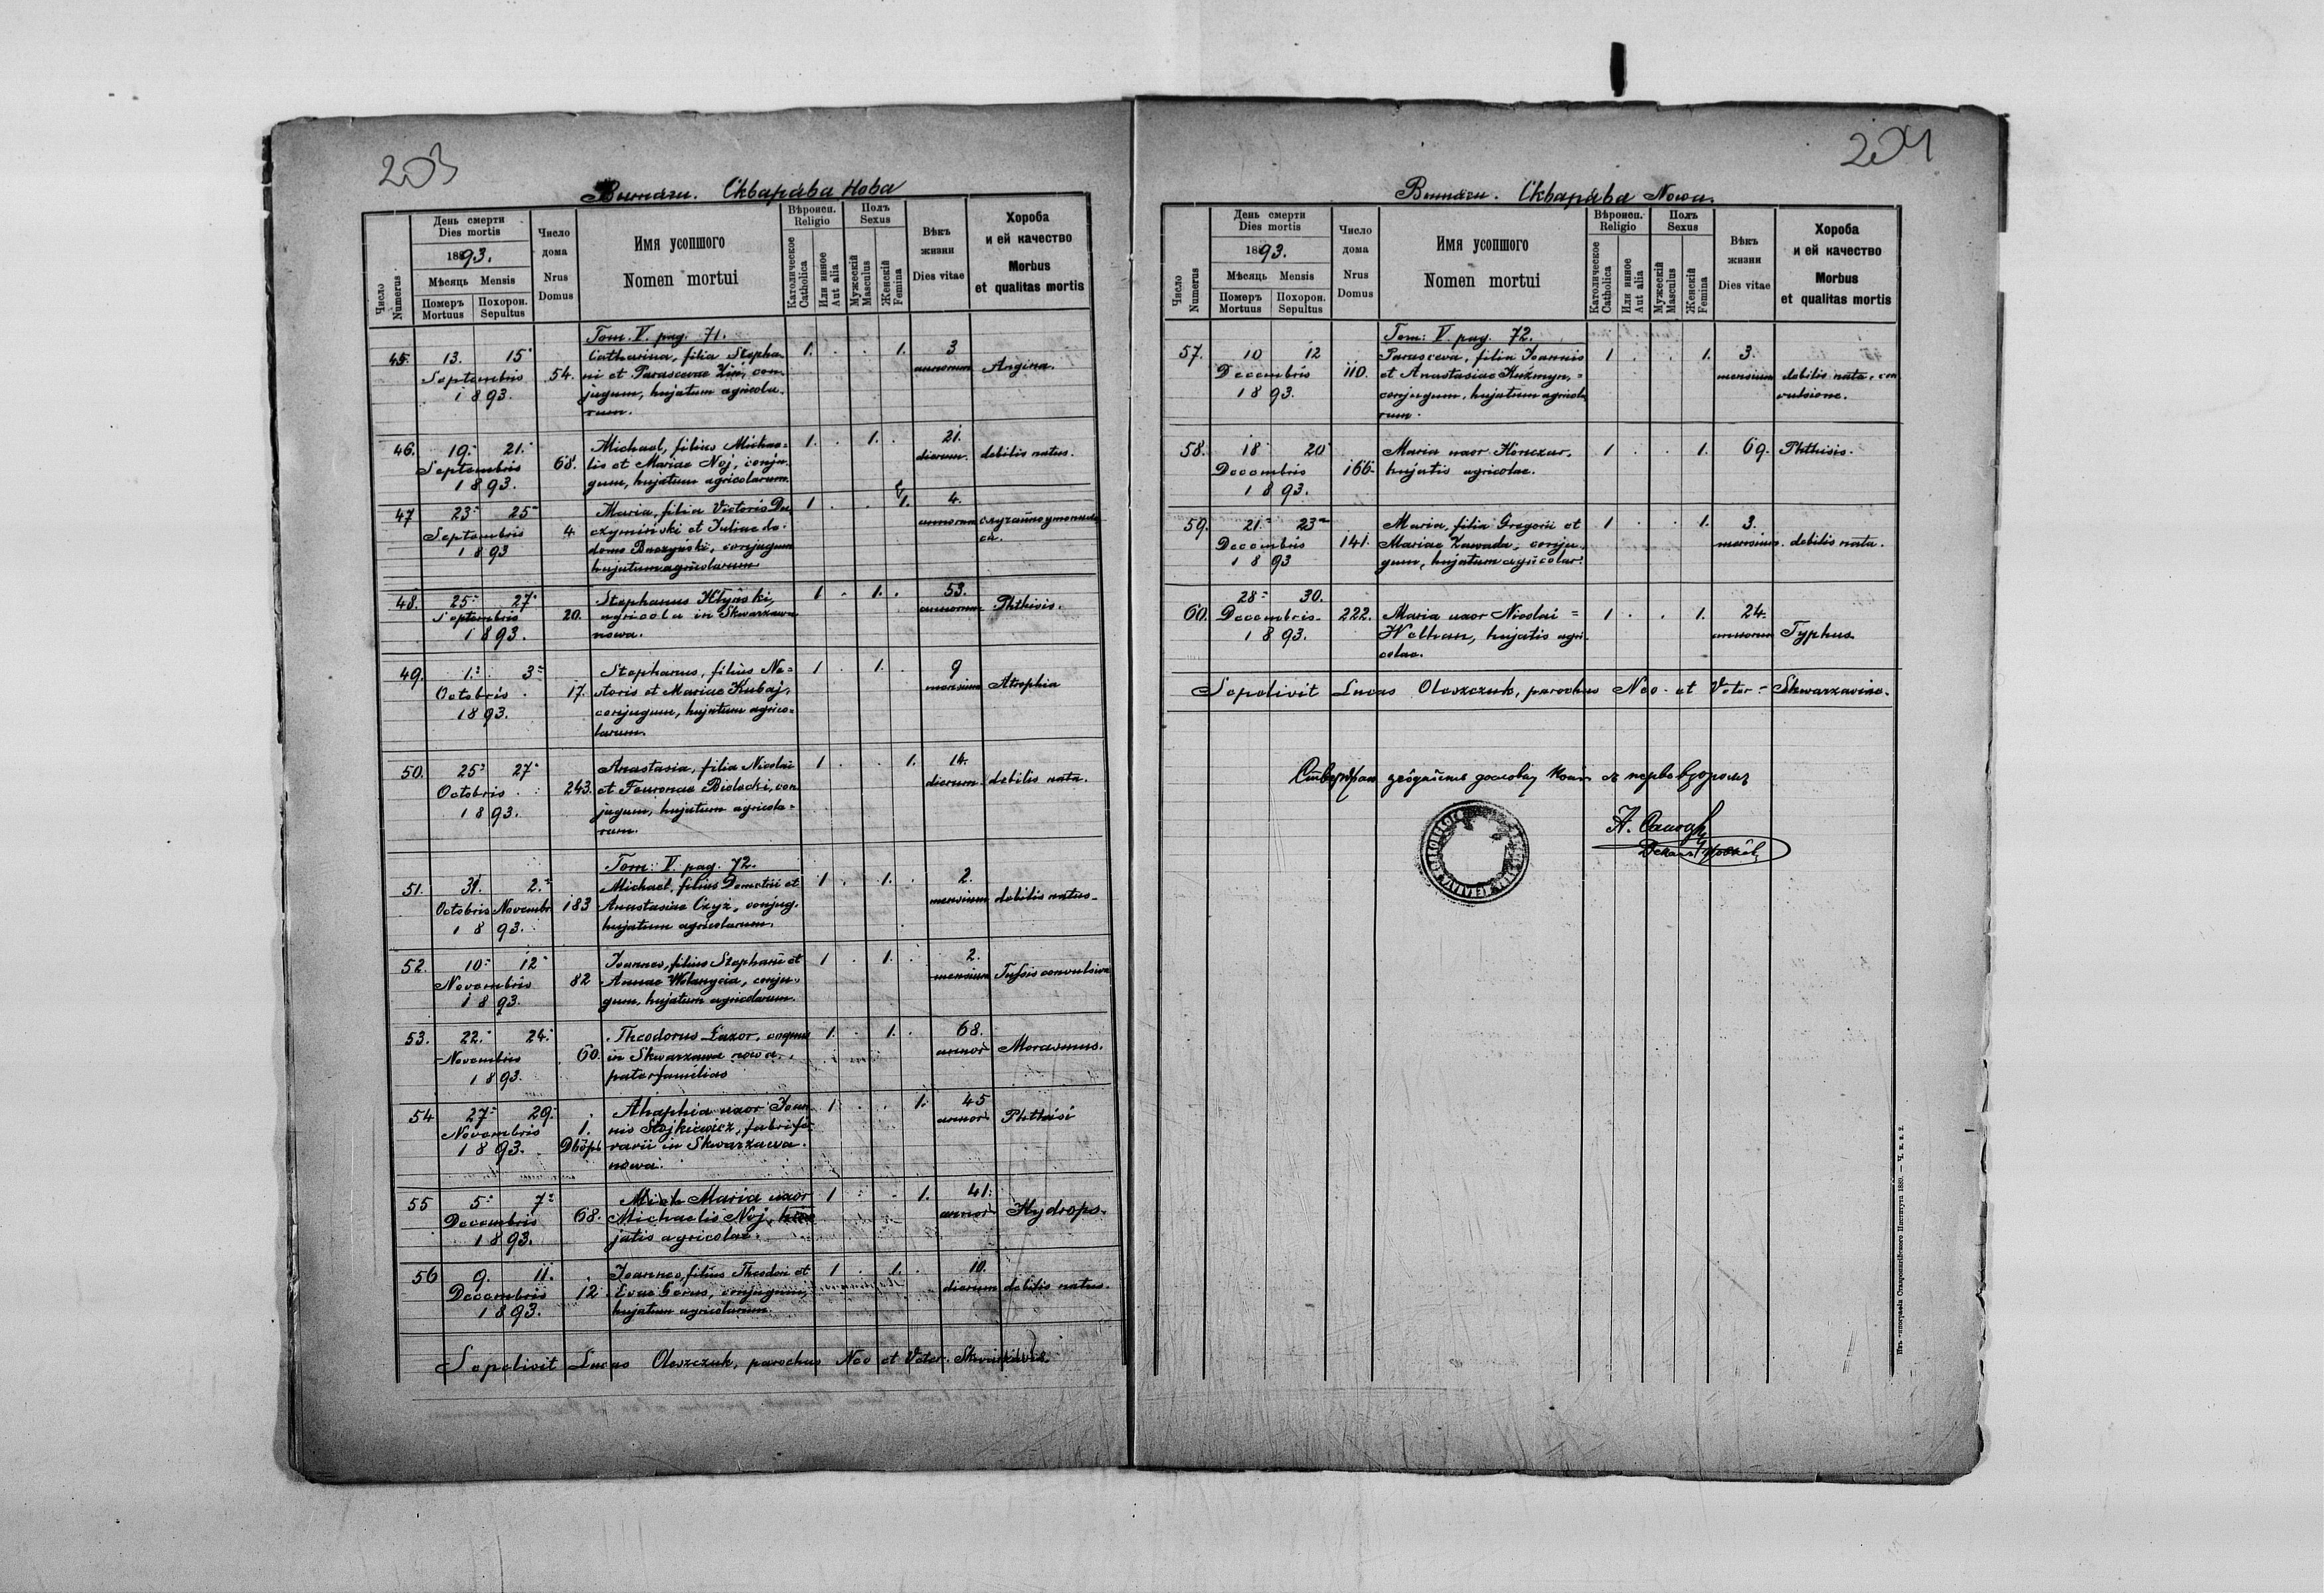 203
Скварѣва Нова
Число
Numerus
День смерти
Dies mortis
1893.
Мѣсяць Mensis
Померъ Похорон.
Mortuus Sepultus
Число
дома
Nrus
Domus
Имя усопшого
Nomen mortui
Вѣроисп.
Religio
Католическое
Catholica
Или инное
Aut alia
Полъ
Sexus
Мужескій
Masculus
Женскій
Femina
Вѣкъ
жизни
Dies vitae
Хороба
и ей качество
Morbus
et qualitas mortis
Tom. V. pag. 71.
45. 13. 15 Catharina, filia Stepha- 1. . . 1. 3
Septembris 54. ni et Parascevae con- annorum Angina.
1893. jugum, hujatum agricola-
rum.
46. 19. 21. Michael, filius Michae- 1. . 1. . 21.
Septembris 68. lis et Mariae Noj, conju- dierum. debilis natus.
1893. gum, hujatum agricolarum.
47 23 25 Maria, filia Victoris Du- 1 . . 1. 4.
Septembris 4. czyminski et Juliae de annorum
1893 domo Baczyński, conjugum
hujatum agricolarum
48. 25 27 Stephanus Hlyński, 1 . 1. . 53.
Septembris 20. agricola in Skwarzawa annorum Phthisis.
1893. nowa.
49. 1. 3 Stephanus, filius Ne- 1 . 1. . 9
Octobris 17. storis et Mariae Kubaj, mensium Atrophia
1893. conjugum, hujatum agrico-
larum.
50. 25 27 Anastasia, filia Nicolai 1 . . 1. 14.
Octobris 243. et Fevroniae Bielecki, con dierum debilis nata.
1893. jugum, hujatum agricola-
rum.
Tom: V. pag. 72.
51. 31. 2. Michael, filius Demetrii et 1 . 1. . 2.
Octobris Novembr 183 Anastasiae Czyż, conjug. mensium debilis natus
1893. hujatum agricolarum.
52. 10 12 Joannes, filius Stephani et 1 . 1. . 2.
Novembris 82 Annae Wolanycia, conju- mensium Tussis convulsiva
1893. gum, hujatum agricolarum.
53. 22. 24. Theodorus Łazor, 1. . 1. . 68.
Novembris 60. in Skwarzawa nowa, annor Marasmus.
1893. paterfamilias
54 27 29. Ahaphia uxor Joan- 1 . . 1. 45
Novembris 1. nis Stojkiewicz, fabri fe- annor Phthisi
1893. Двôръ rarii in Skwarzawa
nowa.
55 5 7 Mich Maria uxor 1 . . 1. 41.
Decembris 68. Michaelis Noj, hu- annor Hydrops.
1893. jatis agricolae.
56 9. 11. Joannes, filius Theodori et 1 . 1. . 10.
Decembris 12 Evae Gerus, conjugum, dierum debilis natus.
1893. hujatum agricolarum.
Sepelivit Lucas Oleszczuk, parochus Neo et Veter. Skwarzaviae.
204
Скварѣва Nowa.
Число
Numerus
День смерти
Dies mortis
1893.
Мѣсяць Mensis
Померъ Похорон.
Mortuus Sepultus
Число
дома
Nrus
Domus
Имя усопшого
Nomen mortui
Вѣроисп.
Religio
Католическое
Catholica
Или инное
Aut alia
Полъ
Sexus
Мужескій
Masculus
Женскій
Femina
Вѣкъ
жизни
Dies vitae
Хороба
и ей качество
Morbus
et qualitas mortis
Tom: V. pag. 72.
57. 10 12 Parasceva, filia Joannis 1 . . 1. 3.
Decembris 110. et Anastasiae Kuźmyn, mensium debilis nata, con
1893. conjugum, hujatum agricola vulsione.
rum.
58. 18 20 Maria uxor Honczar, 1 . . 1. 69. Phthisis.
Decembris 166. hujatis agricolae.
1893.
59. 21. 23 Maria, filia Gregorii et 1 . . 1. 3.
Decembris 141. Mariae Zawada, conju- mensium. debilis nata.
1893 gum, hujatum agricolar.
28 30.
60. Decembris 222. Maria uxor Nicolai 1 . . 1. 24.
1893. Welhan, hujatis agri- annorum Typhus
colae.
Sepelivit Lucas Oleszczuk, parochus Neo et Veter Skwarzaviae.
Изъ типографіи Ставропигійского Института 1889. — Ч. в. в. 2.